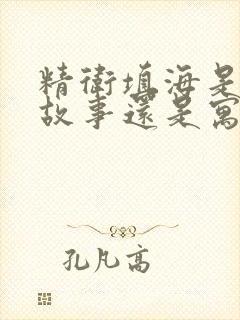 精衛填海是
故事還是寓
孔凡高